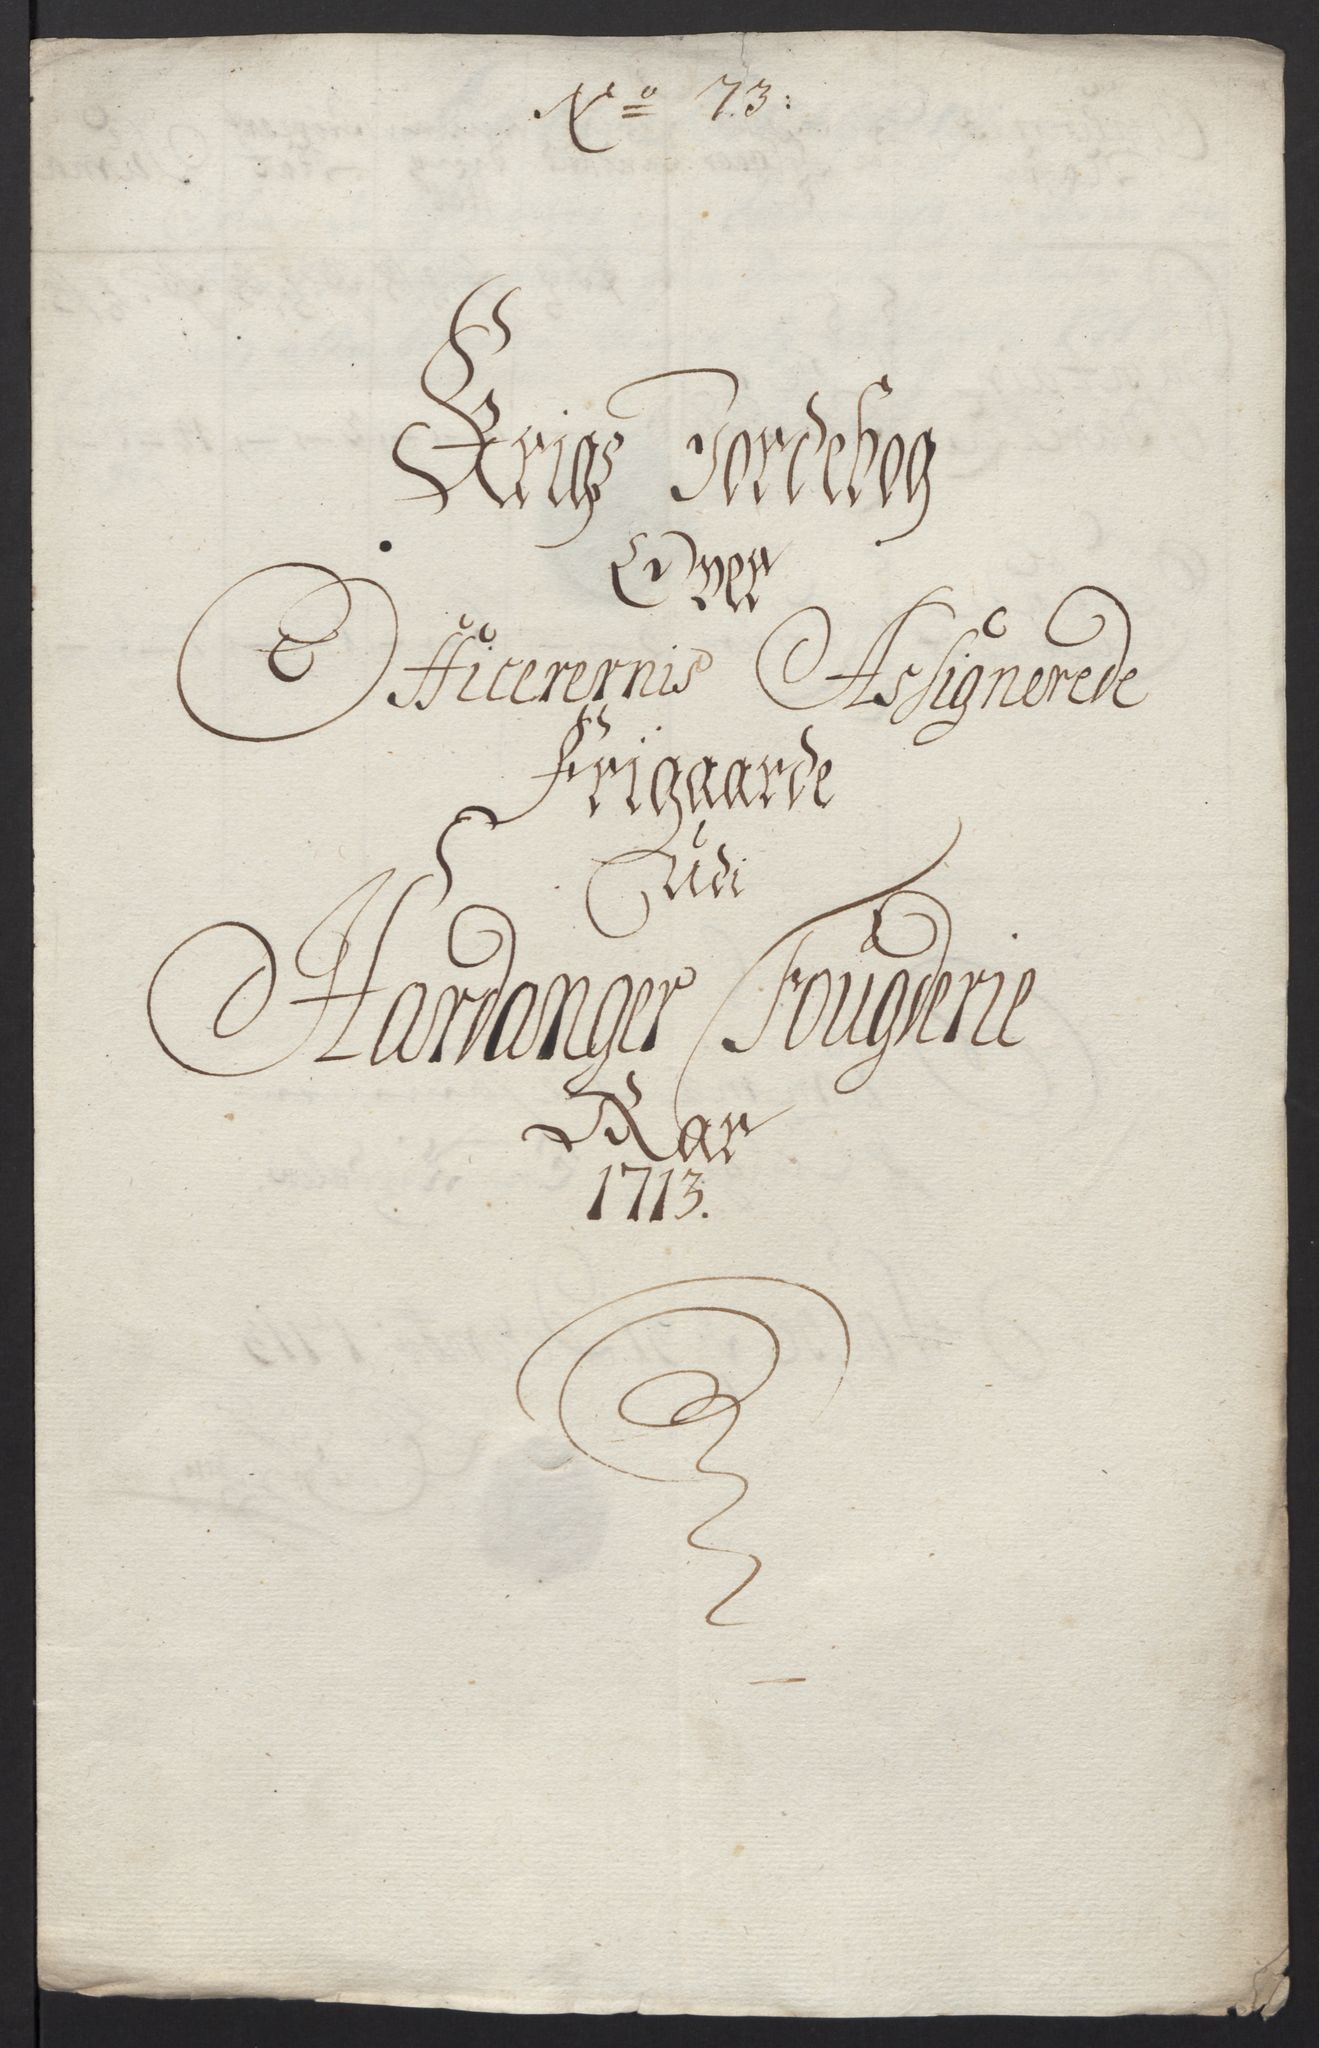 No 73:
Krigs Jordebog
Over
Officerernis Assignerede
Frigaarde
Udi
Hardanger Fougderie
Aar
1713.